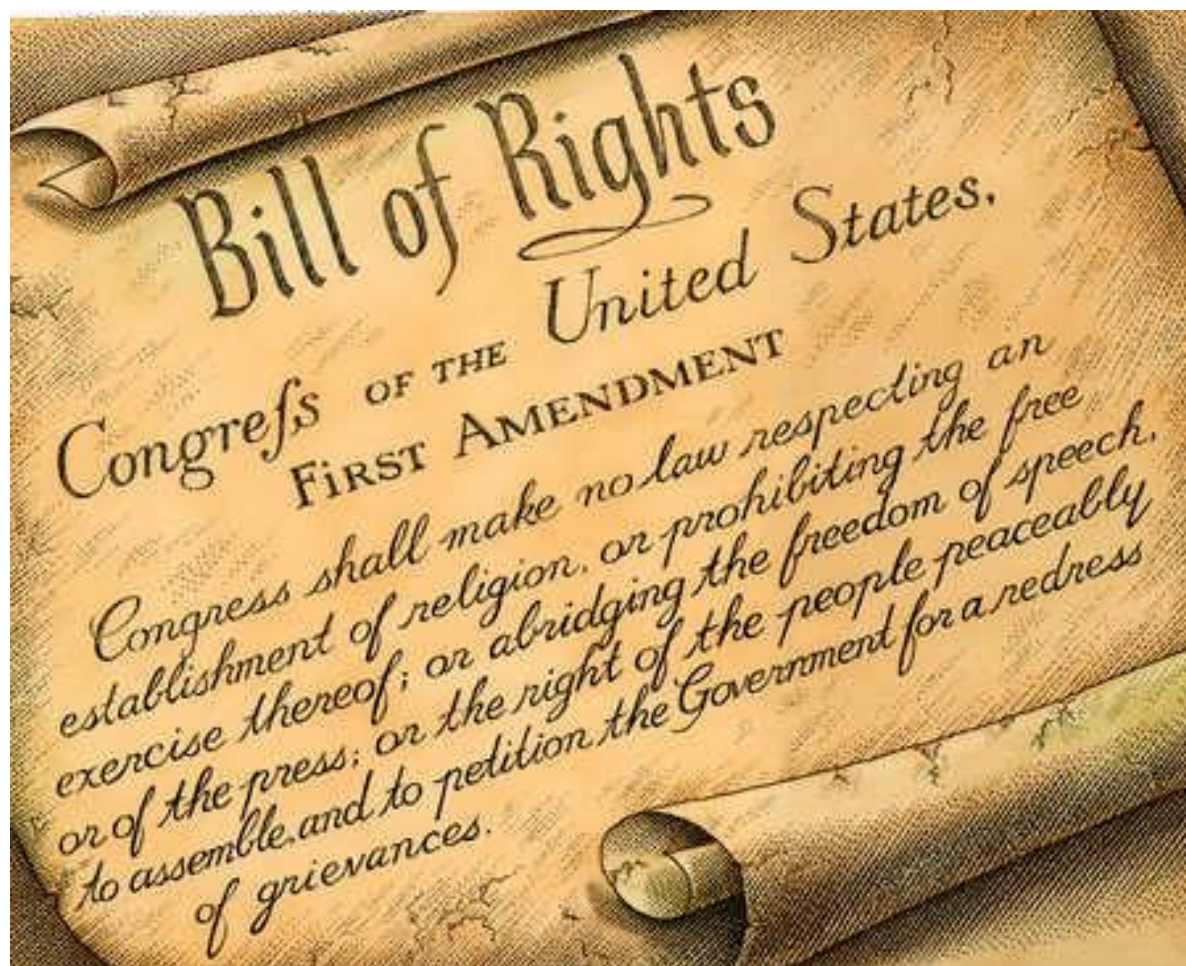 Bill of Rights
Congreſs OF THE United States,
FIRST AMENDMENT
Congress shall make no law respecting an
establishment of religion, or prohibiting the free
exercise thereof; or abridging the freedom of speech,
or of the press; or the right of the people peaceably
to assemble, and to petition the Government for a redress
of grievances.